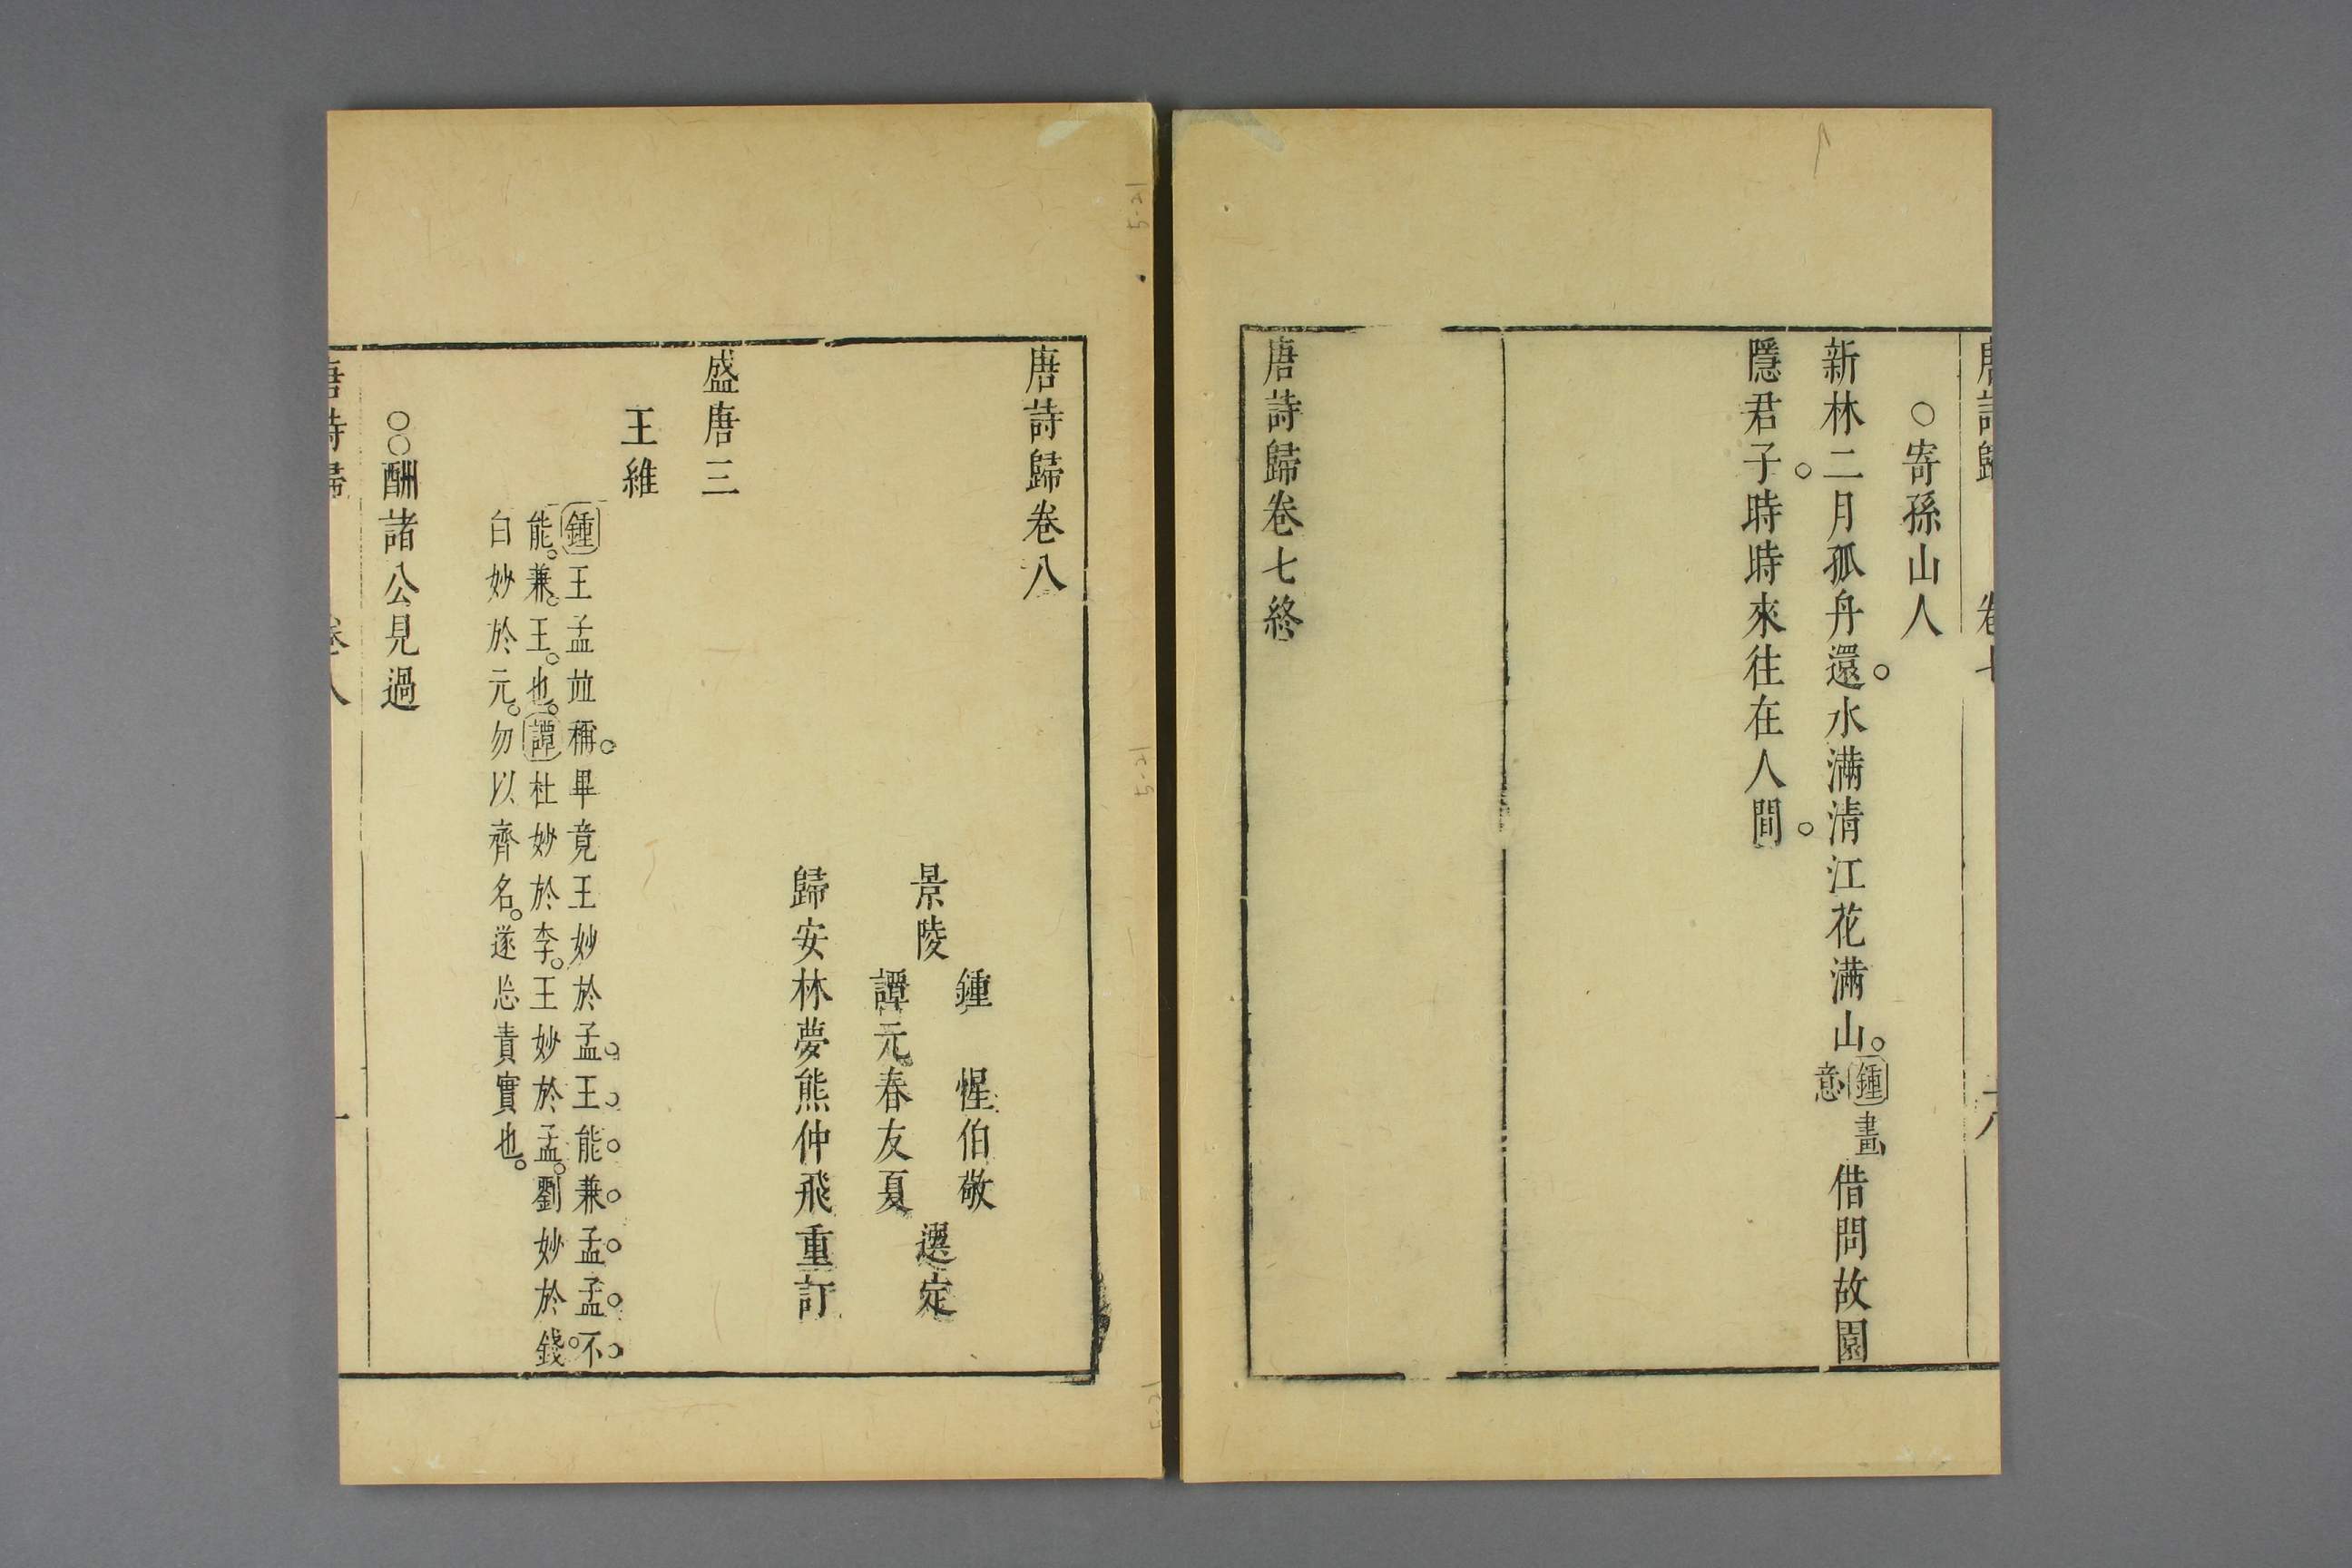 唐詩歸 卷七 十八
○寄孫山人
新林二月孤舟還。水滿清江花滿山。鍾畫意借問故園
隱君子。時時來往在人間。
唐詩歸卷七終
唐詩歸卷八
景陵
鍾 惺伯敬
譚元春友夏
選定
歸安林夢熊仲飛重訂
盛唐三
王維
鍾王孟並稱。畢竟王妙於孟。王能兼孟。孟不
能兼王也。譚杜妙於李。王妙於孟。劉妙於錢。
白妙於元。勿以齊名。遂忘責實也。
○○酬諸公見過
唐詩歸 卷八 一